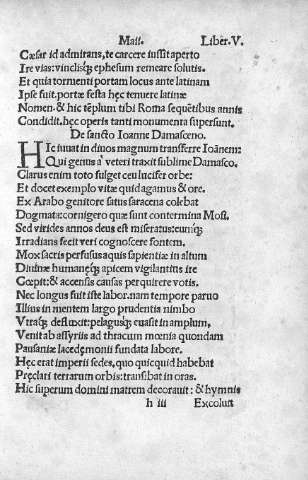 Maii. Liber.V.
Cæsar id admirans, te carcere iussit aperto
Ire vias: vinclisq; ephesum remeare solutis.
Et quia tormenti portam locus ante latinam
Ipse fuit. portæ festa hęc tenuere latinæ
Nomen. & hic tēplum tibi Roma sequētibus annis
Condidit. hęc operis tanti monumenta supersunt.
De sancto Ioanne Damasceno.
HIc iuuat in diuos magnum transferre Ioānem:
Qui genus a veteri traxit sublime Damasco.
Clarus enim toto fulget ceu lucifer orbe:
Et docet exemplo vitæ quid agamus & ore.
Ex Arabo genitore satus saracena colebat
Dogmata: cornigero quæ sunt contermina Mosi.
Sed virides annos deus est miseratus: eumq;
Irradians fecit veri cognoscere fontem.
Mox sacris perfusus aquis sapientiæ in altum
Diuinæ humanęq; apicem vigilantius ire
Cœpit: & accensas causas perquirere votis.
Nec longus fuit iste labor. nam tempore paruo
Illius in mentem largo prudentia nimbo
Vtraq; defluxit: pelagusq; euasit in amplum,
Venit ab assyriis ad thracum mœnia quondam
Pausaniæ lacedęmonii fundata labore.
Hęc erat imperii sedes, quo quicquid habebat
Pręclari terrarum orbis: transibat in oras.
Hic superum domini matrem decorauit: & hymnis
h iii Excoluit